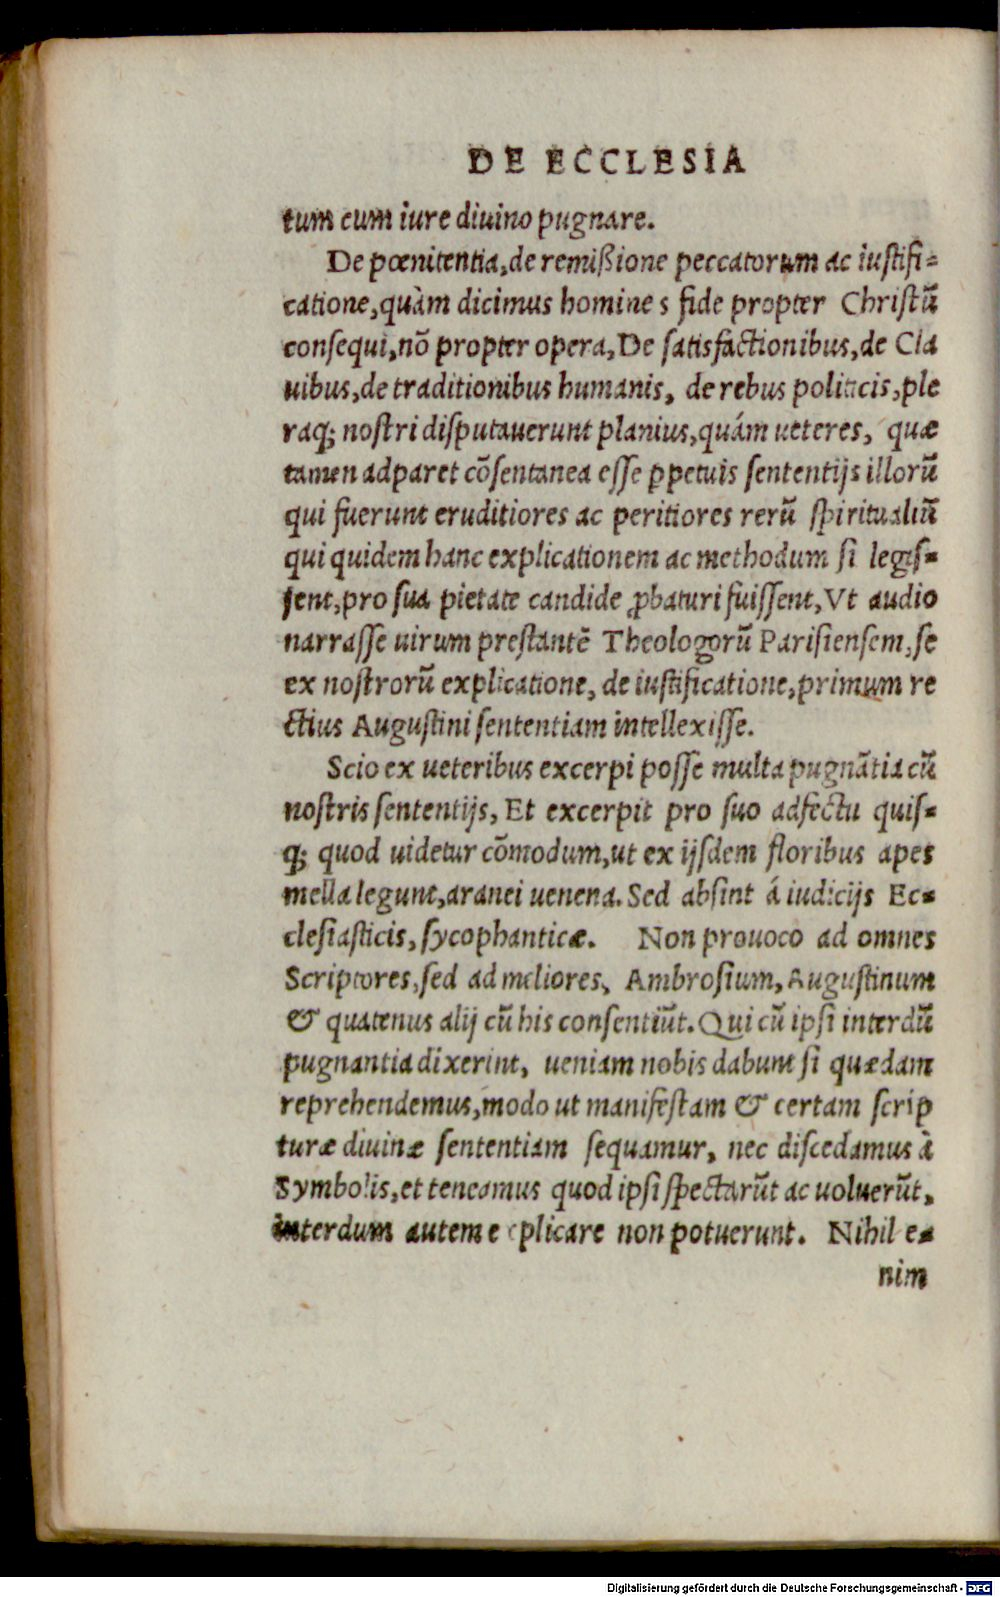 DE ECCLESIA
tum cum iure diuino pugnare.
De pœnitentia, de remißione peccatorum ac iustifi-
catione, quàm dicimus homine s fide propter Christū
consequi, nō propter opera, De satisfactionibus, de Cla
uibus, de traditionibus humanis, de rebus politicis, ple
raq; nostri disputauerunt planius, quám ueteres, quæ
tamen adparet cōsentanea esse ꝑpetuis sententijs illorū
qui fuerunt eruditiores ac peritiores rerū spiritualiū
qui quidem hanc explicationem ac methodum si legis-
sent, pro sua pietate candide ꝓbaturi fuissent, Vt audio
narrasse uirum prestantē Theologorū Parisiensem, se
ex nostrorū explicatione, de iustificatione, primum re
ctius Augustini sententiam intellexisse.
Scio ex ueteribus excerpi posse multa pugnātia cū
nostris sententijs, Et excerpit pro suo adfectu quis-
q; quod uidetur cōmodum, ut ex ijsdem floribus apes
mella legunt, aranei uenena. Sed absint á iudicijs Ec-
clesiasticis, sycophanticæ. Non prouoco ad omnes
Scriptores, sed ad meliores, Ambrosium, Augustinum
& quatenus alij cū his consentiūt. Qui cū ipsi interdū
pugnantia dixerint, ueniam nobis dabunt si quædam
reprehendemus, modo ut manifestam & certam scrip
turæ diuinæ sententiam sequamur, nec discedamus à
Symbolis, et teneamus quod ipsi spectarūt ac uoluerūt,
interdum autem e plicare non potuerunt. Nihil e-
nim
Digitalisierung gefördert durch die Deutsche Forschungsgemeinschaft - DFG